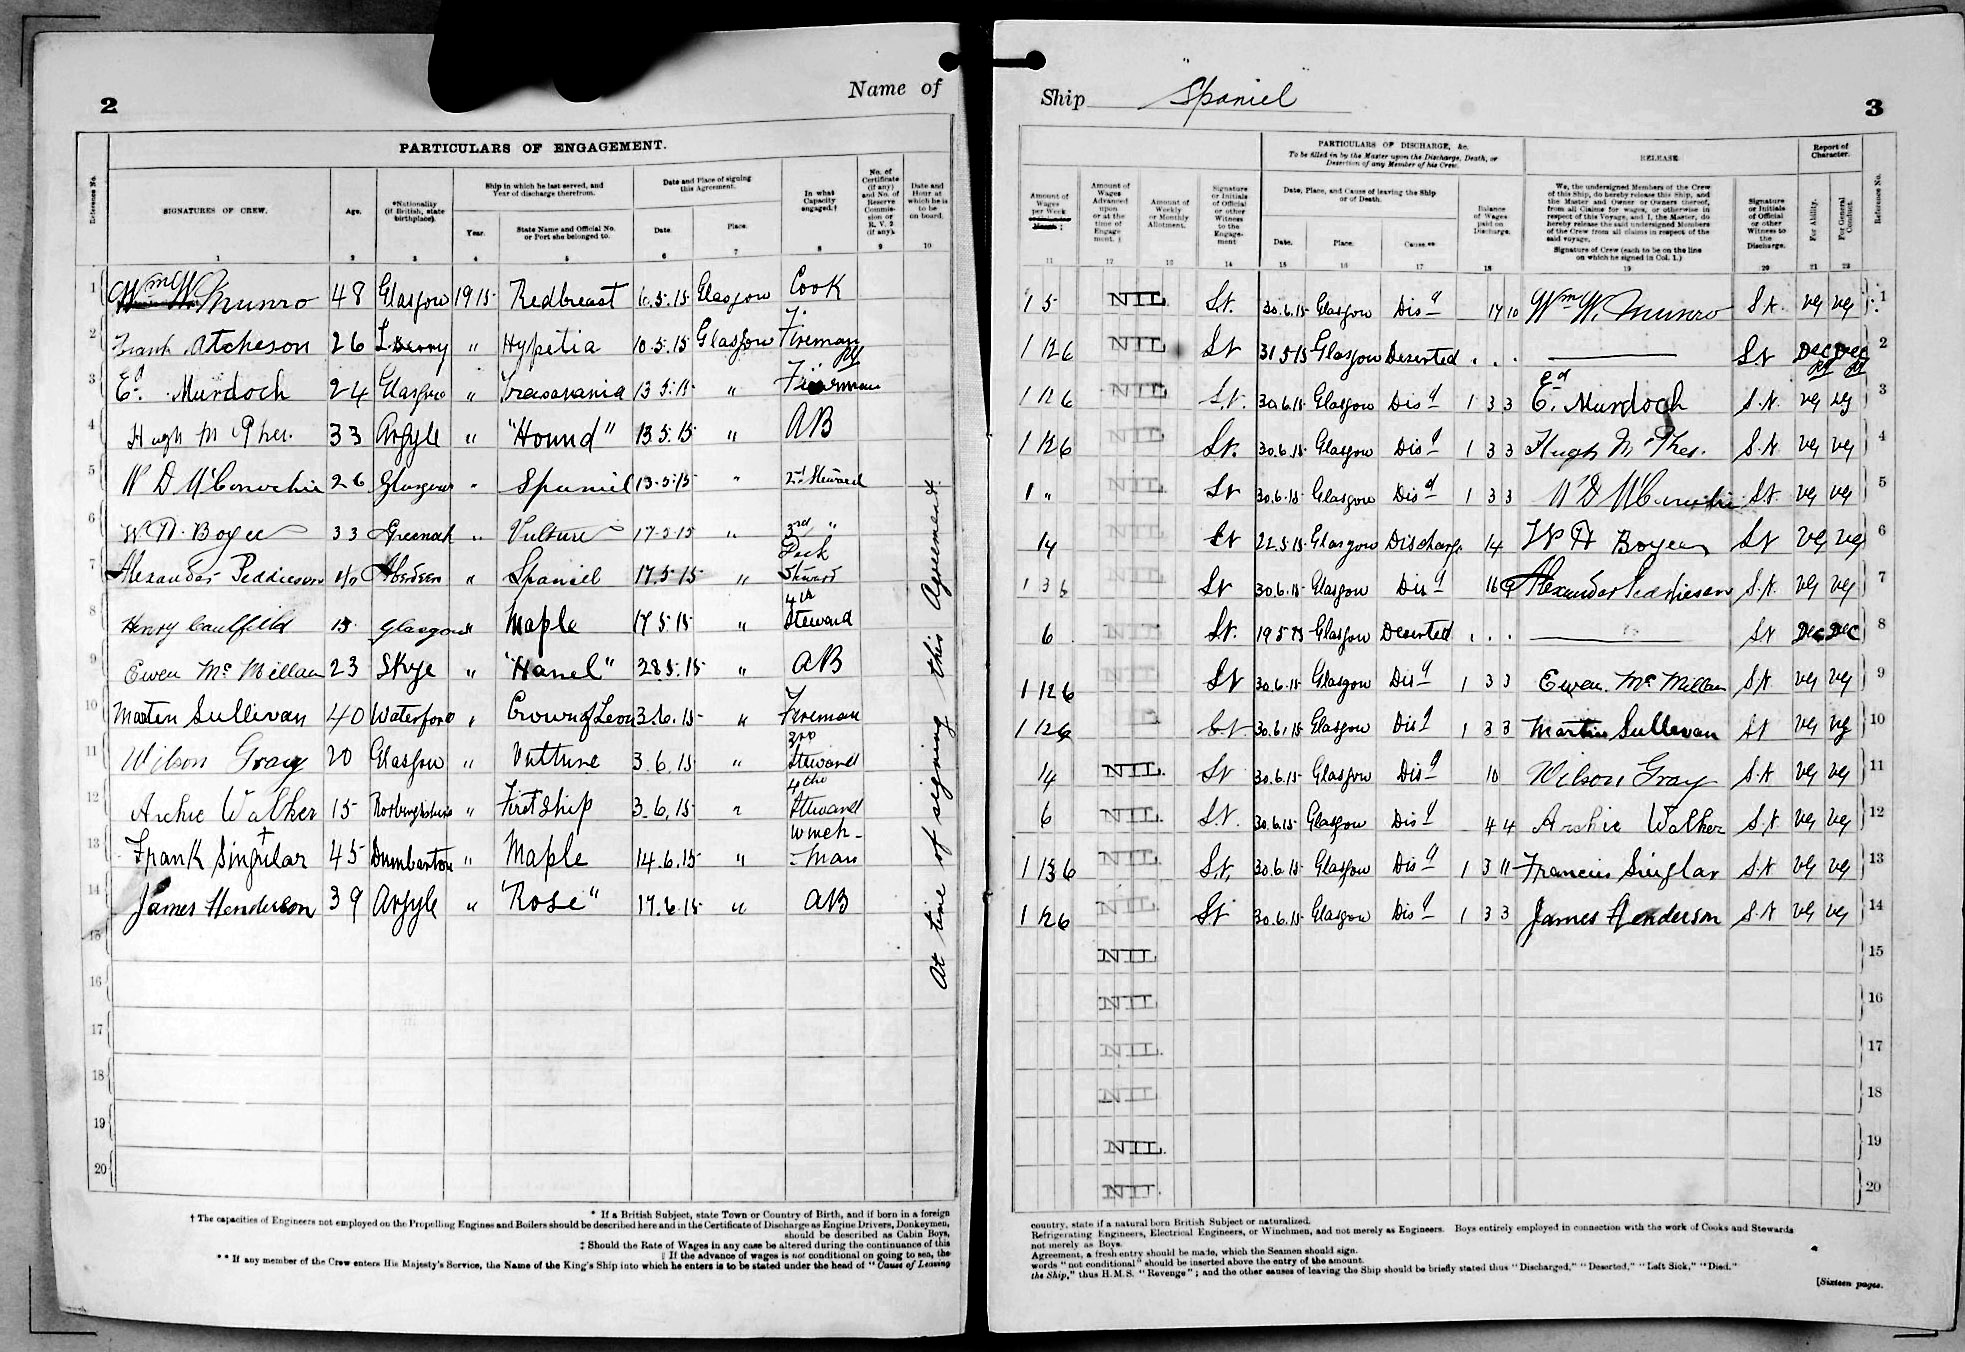 2
Name of
PARTICULARS OF ENGAGEMENT.
Reference No.
SIGNATURES OF CREW.
Age.
*Nationality (if British, state birthplace).
Ship in which he last served, and Year of discharge therefrom.
Year.
State Name and Official No. or Port she belonged to.
Date and Place of signing this Agreement.
Date.
Place.
In what Capacity engaged.†
No. of Certificate (if any) and No. of Reserve Commission or R.V. 2 (if any).
Date and Hour at which he is to be on board.
1 2 3 4 5 6 7 8 9 10
1 Wm W. Munro 48 Glasgow 1915 Redbreast 6.5.15 Glasgow Cook
2 Frank Atcheson 26 L.Derry " Hypetia 10.5.15 Glasgow Fireman
3 Ed. Murdoch 24 Glasgow " 13.5.15 " Fireman
4 Hugh McPhee 33 Argyle " "Hound" 13.5.15 " AB
5 W D McConochie 26 Glasgow " Spaniel 13.5.15 " 2nd Steward
6 W. H. Boyce 33 Greenock " Vulture 17.5.15 " 3rd "
7 Alexander Peddieson Aberdeen " Spaniel 17.5.15 " Steward
8 Henry Caulfield 15 Glasgow " Maple 17.5.15 " 4th Steward
9 Ewen McMillan 23 Skye " 28.5.15 " AB
10 Martin Sullivan 40 Waterford " Crown of Leon 3.6.15 " Fireman
11 Wilson Gray 20 Glasgow " Vulture 3.6.15 " 3rd Steward
12 Archie Walker 15 Roxburghshire " First Ship 3.6.15 " 4th Steward
13 Frank Singular 45 Dumbarton " Maple 14.6.15 " Winch-man
14 James Henderson 39 Argyle " "Rose" 17.6.15 " AB
15
16
17
18
19
20
At time of signing this Agreement.
* If a British Subject, state Town or Country of Birth, and if born in a foreign
† The capacities of Engineers not employed on the Propelling Engines and Boilers should be described here and in the Certificate of Discharge as Engine Drivers, Donkeymen,
should be described as Cabin Boys,
‡ Should the Rate of Wages in any case be altered during the continuance of this
|| If the advance of wages is not conditional on going to sea, the
** If any member of the Crew enters His Majesty's Service, the Name of the King's Ship into which he enters is to be stated under the head of "Cause of Leaving
Ship "Spaniel"
3
Amount of Wages per Week
Amount of Wages Advanced upon or at the time of Engagement. ‡
Amount of Weekly or Monthly Allotment.
Signature or Initials of Official or other Witness to the Engagement
PARTICULARS OF DISCHARGE, &c.
To be filled in by the Master upon the Discharge, Death, or Desertion of any Member of his Crew.
Date, Place, and Cause of leaving the Ship or of Death.
Date.
Place.
Cause.**
Balance of Wages paid on Discharge.
RELEASE
We, the undersigned Members of the Crew of this Ship, do hereby release this Ship, and the Master and Owner or Owners thereof, from all Claims for wages, or otherwise in respect of this Voyage, and I, the Master, do hereby release the said undersigned Members of the Crew from all claims in respect of the said voyage.
Signature of Crew (each to be on the line on which he signed in Col. 1.)
Signature or Initials of Official or other Witness to the Discharge.
Report of Character.
For Ability.
For General Conduct.
Reference No.
11 12 13 14 15 16 17 18 19 20 21 22
1 5 NIL. St. 30.6.15 Glasgow Disd 17 10 Wm W. Munro S.t. VG VG 1
1 12 6 NIL St 31.5.15 Glasgow Deserted . . . St Dec Dec 2
1 12 6 NIL St. 30.6.15 Glasgow Disd 1 3 3 Ed. Murdoch S.t. VG VG 3
1 12 6 NIL St. 30.6.15 Glasgow Disd 1 3 3 Hugh McPhee S.t VG VG 4
1 " NIL St 30.6.15 Glasgow Disd 1 3 3 W D McConochie St. VG VG 5
14 St 22.5.15 Glasgow Discharge 14 W H Boyce St VG VG 6
1 3 6 St 30.6.15 Glasgow Disd 16 9 Alexander Peddieson S.t. VG VG 7
6 NIL St. 19.5.15 Glasgow Deserted . . . St Dec Dec 8
1 12 6 St 30.6.15 Glasgow Disd 1 3 3 Ewen McMillan St VG VG 9
1 12 6 St 30.6.15 Glasgow Disd 1 3 3 Martin Sullivan St VG VG 10
14 NIL. St 30.6.15 Glasgow Disd 10 Wilson Gray S.t VG VG 11
6 NIL. St. 30.6.15 Glasgow Disd 4 4 Archie Walker S.t. VG VG 12
1 13 6 NIL St. 30.6.15 Glasgow Disd 1 3 11 Francis Singlar S.t VG VG 13
1 12 6 NIL. St 30.6.15 Glasgow Disd 1 3 3 James Henderson S.t VG VG 14
NIL. 15
NIL 16
NIL. 17
NIL 18
NIL. 19
NIL. 20
country, state if a natural born British Subject or naturalized.
Refrigerating Engineers, Electrical Engineers, or Winchmen, and not merely as Engineers. Boys entirely employed in connection with the work of Cooks and Stewards
not merely as Boys.
Agreement, a fresh entry should be made, which the Seamen should sign.
words "not conditional" should be inserted above the entry of the amount.
the Ship," thus H.M.S. "Revenge"; and the other causes of leaving the Ship should be briefly stated thus "Discharged," "Deserted," "Left Sick," "Died."
[Sixteen pages.